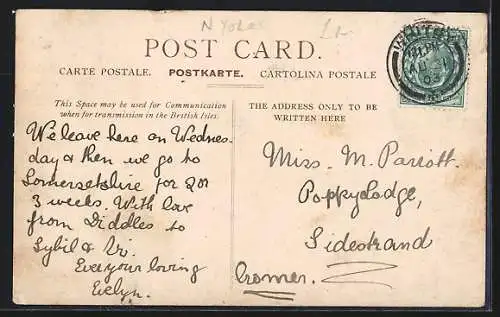 N Yorks
POST CARD.
CARTE POSTALE. POSTKARTE. CARTOLINA POSTALE
This Space may be used for Communication
when for transmission in the British Isles.
THE ADDRESS ONLY TO BE
WRITTEN HERE
We leave here on Wednes-
day & then we go to
Somersetshire for 2 or
3 weeks. With love
from Diddles to
Sybil & Vi.
Ever your loving
Evelyn.
Miss. M. Parrott.
Poppylodge,
Sidestrand
Cromer.